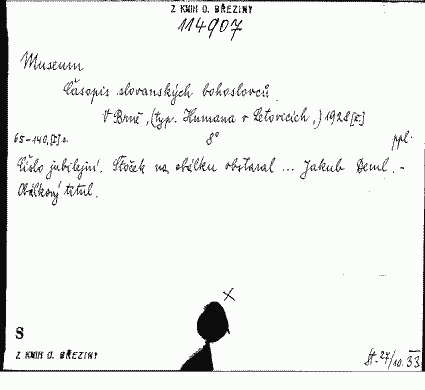 Z KNIH O. BŘEZINY
114907
Museum
Časopis slovanských bohoslovců
V Brně, (typ. Humana v Letovicích,) 1928 [I.]
65-140, [I] s. 8° ppl.
Číslo jubilejní. Štoček na obálku obstaral ... Jakub Deml. -
Obálkový titul.
S
Z KNIH O. BŘEZINY
St. 27/10. 33